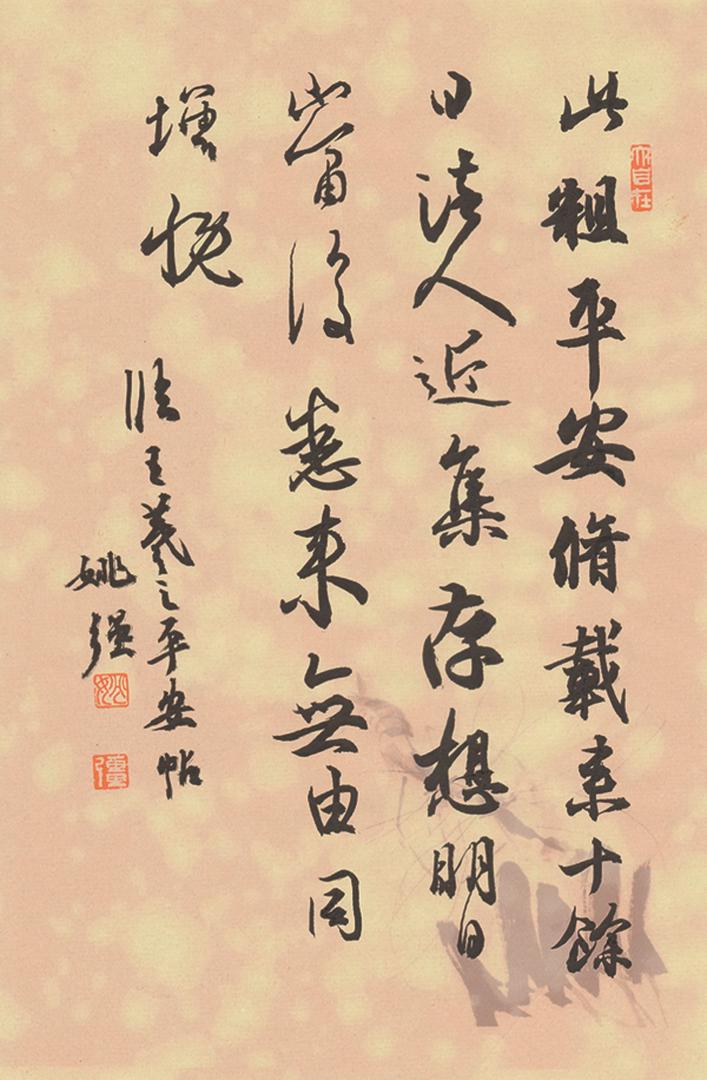 此粗平安脩載来十餘
日諸人近集存想明日
當復悉来無由同
增慨
臨王羲之平安帖
姚强
大自在